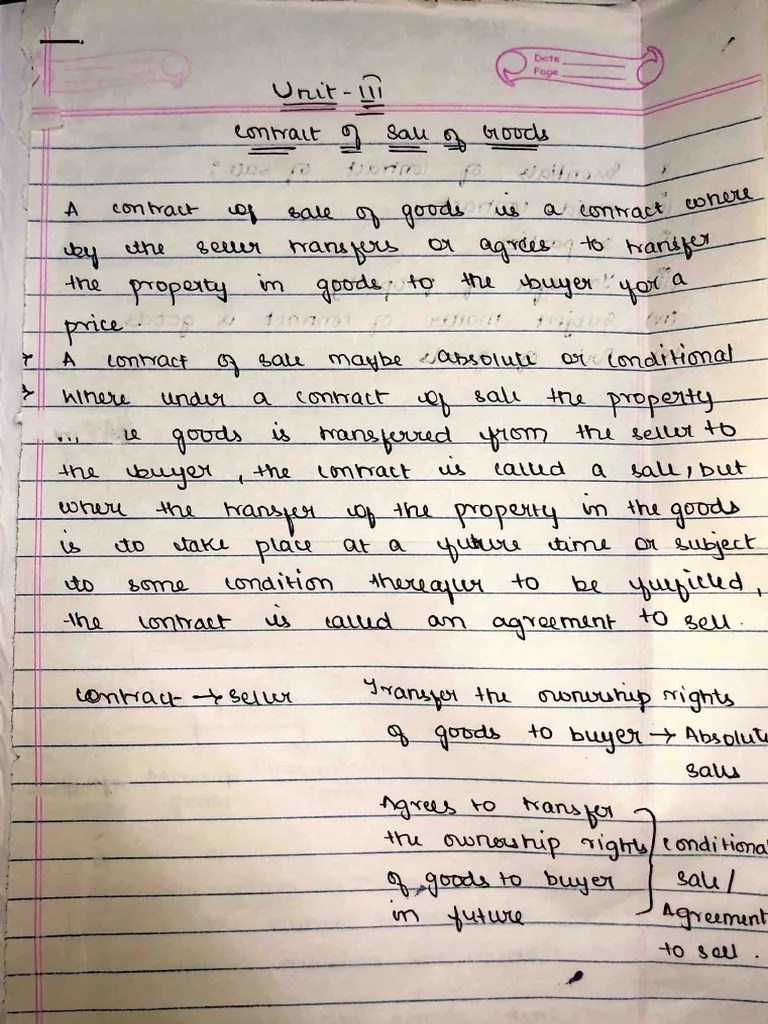 Date
Page
Unit - III
Contract of Sale of Goods
A contract of sale of goods is a contract where
by the seller transfers or agrees to transfer
the property in goods, to the buyer for a
price.
A contract of sale maybe absolute or conditional
Where under a contract of sale the property
... goods is transferred from the seller to
the buyer, the contract is called a sale, but
where the transfer of the property in the goods
is to take place at a future time or subject
to some condition thereafter to be fulfilled,
the contract is called an agreement to sell.
contract → seller Transfer the ownership rights
of goods to buyer → Absolute
sales
Agrees to transfer
the ownership rights conditional
of goods to buyer sale/
in future Agreement
to sell.